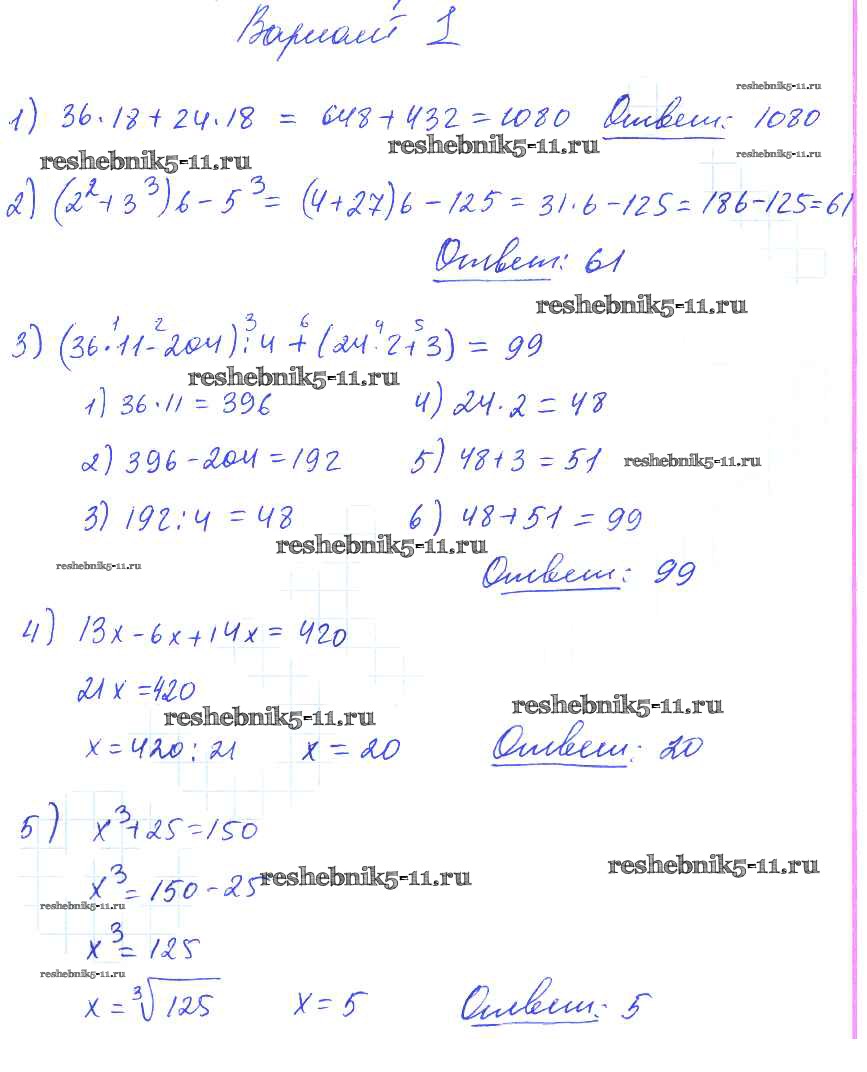 Вариант 1
reshebnik5-11.ru
1) 36·18+24·18 = 648+432=1080 Ответ: 1080
reshebnik5-11.ru reshebnik5-11.ru reshebnik5-11.ru
2) (2²+3³)6-5³= (4+27)6-125=31·6-125=186-125=61
Ответ: 61
reshebnik5-11.ru
1 2 3 6 4 5
3) (36·11-204):4+(24·2+3) = 99
reshebnik5-11.ru
1) 36·11=396 4) 24·2=48
2) 396-204=192 5) 48+3=51 reshebnik5-11.ru
3) 192:4=48 6) 48+51=99
reshebnik5-11.ru
reshebnik5-11.ru Ответ: 99
4) 13x-6x+14x=420
21x=420
reshebnik5-11.ru reshebnik5-11.ru
x=420:21 x=20 Ответ: 20
5) x³+25=150
reshebnik5-11.ru
x³=150-25 reshebnik5-11.ru
reshebnik5-11.ru
x³=125
reshebnik5-11.ru
x=∛125 x=5 Ответ: 5